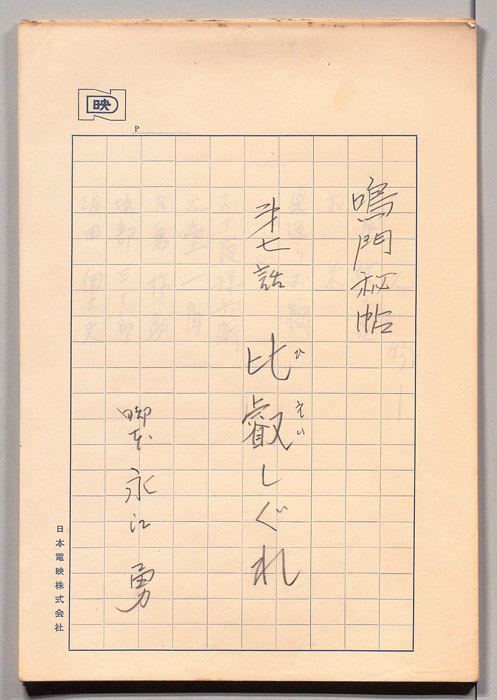 映
P
鳴門秘帖
第七話 比叡しぐれ
ひ えい
脚本 永江 勇
日本電映株式会社